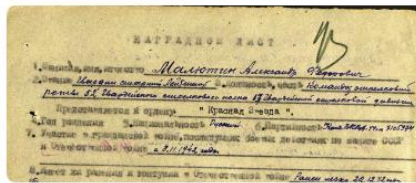 НАГРАДНОЙ ЛИСТ
1. Фамилия, имя, отчество Малютин Александр Федорович
2. Звание Гвардии старший Лейтенант 3. Должность, часть Командир стрелковой
роты 52 Гвардейского стрелкового полка 17 Гвардейской стрелковой дивизии
Представляется к ордену "Красная Звезда".
4. Год рождения 5. Национальность Русский 6. Партийность
7. Участие в гражданской войне, последующих боевых действиях по защите СССР
и Отечественной войне с 1942 года
8. Имеет ли ранения и контузии в Отечественной войне Ранен легко 20.12.42